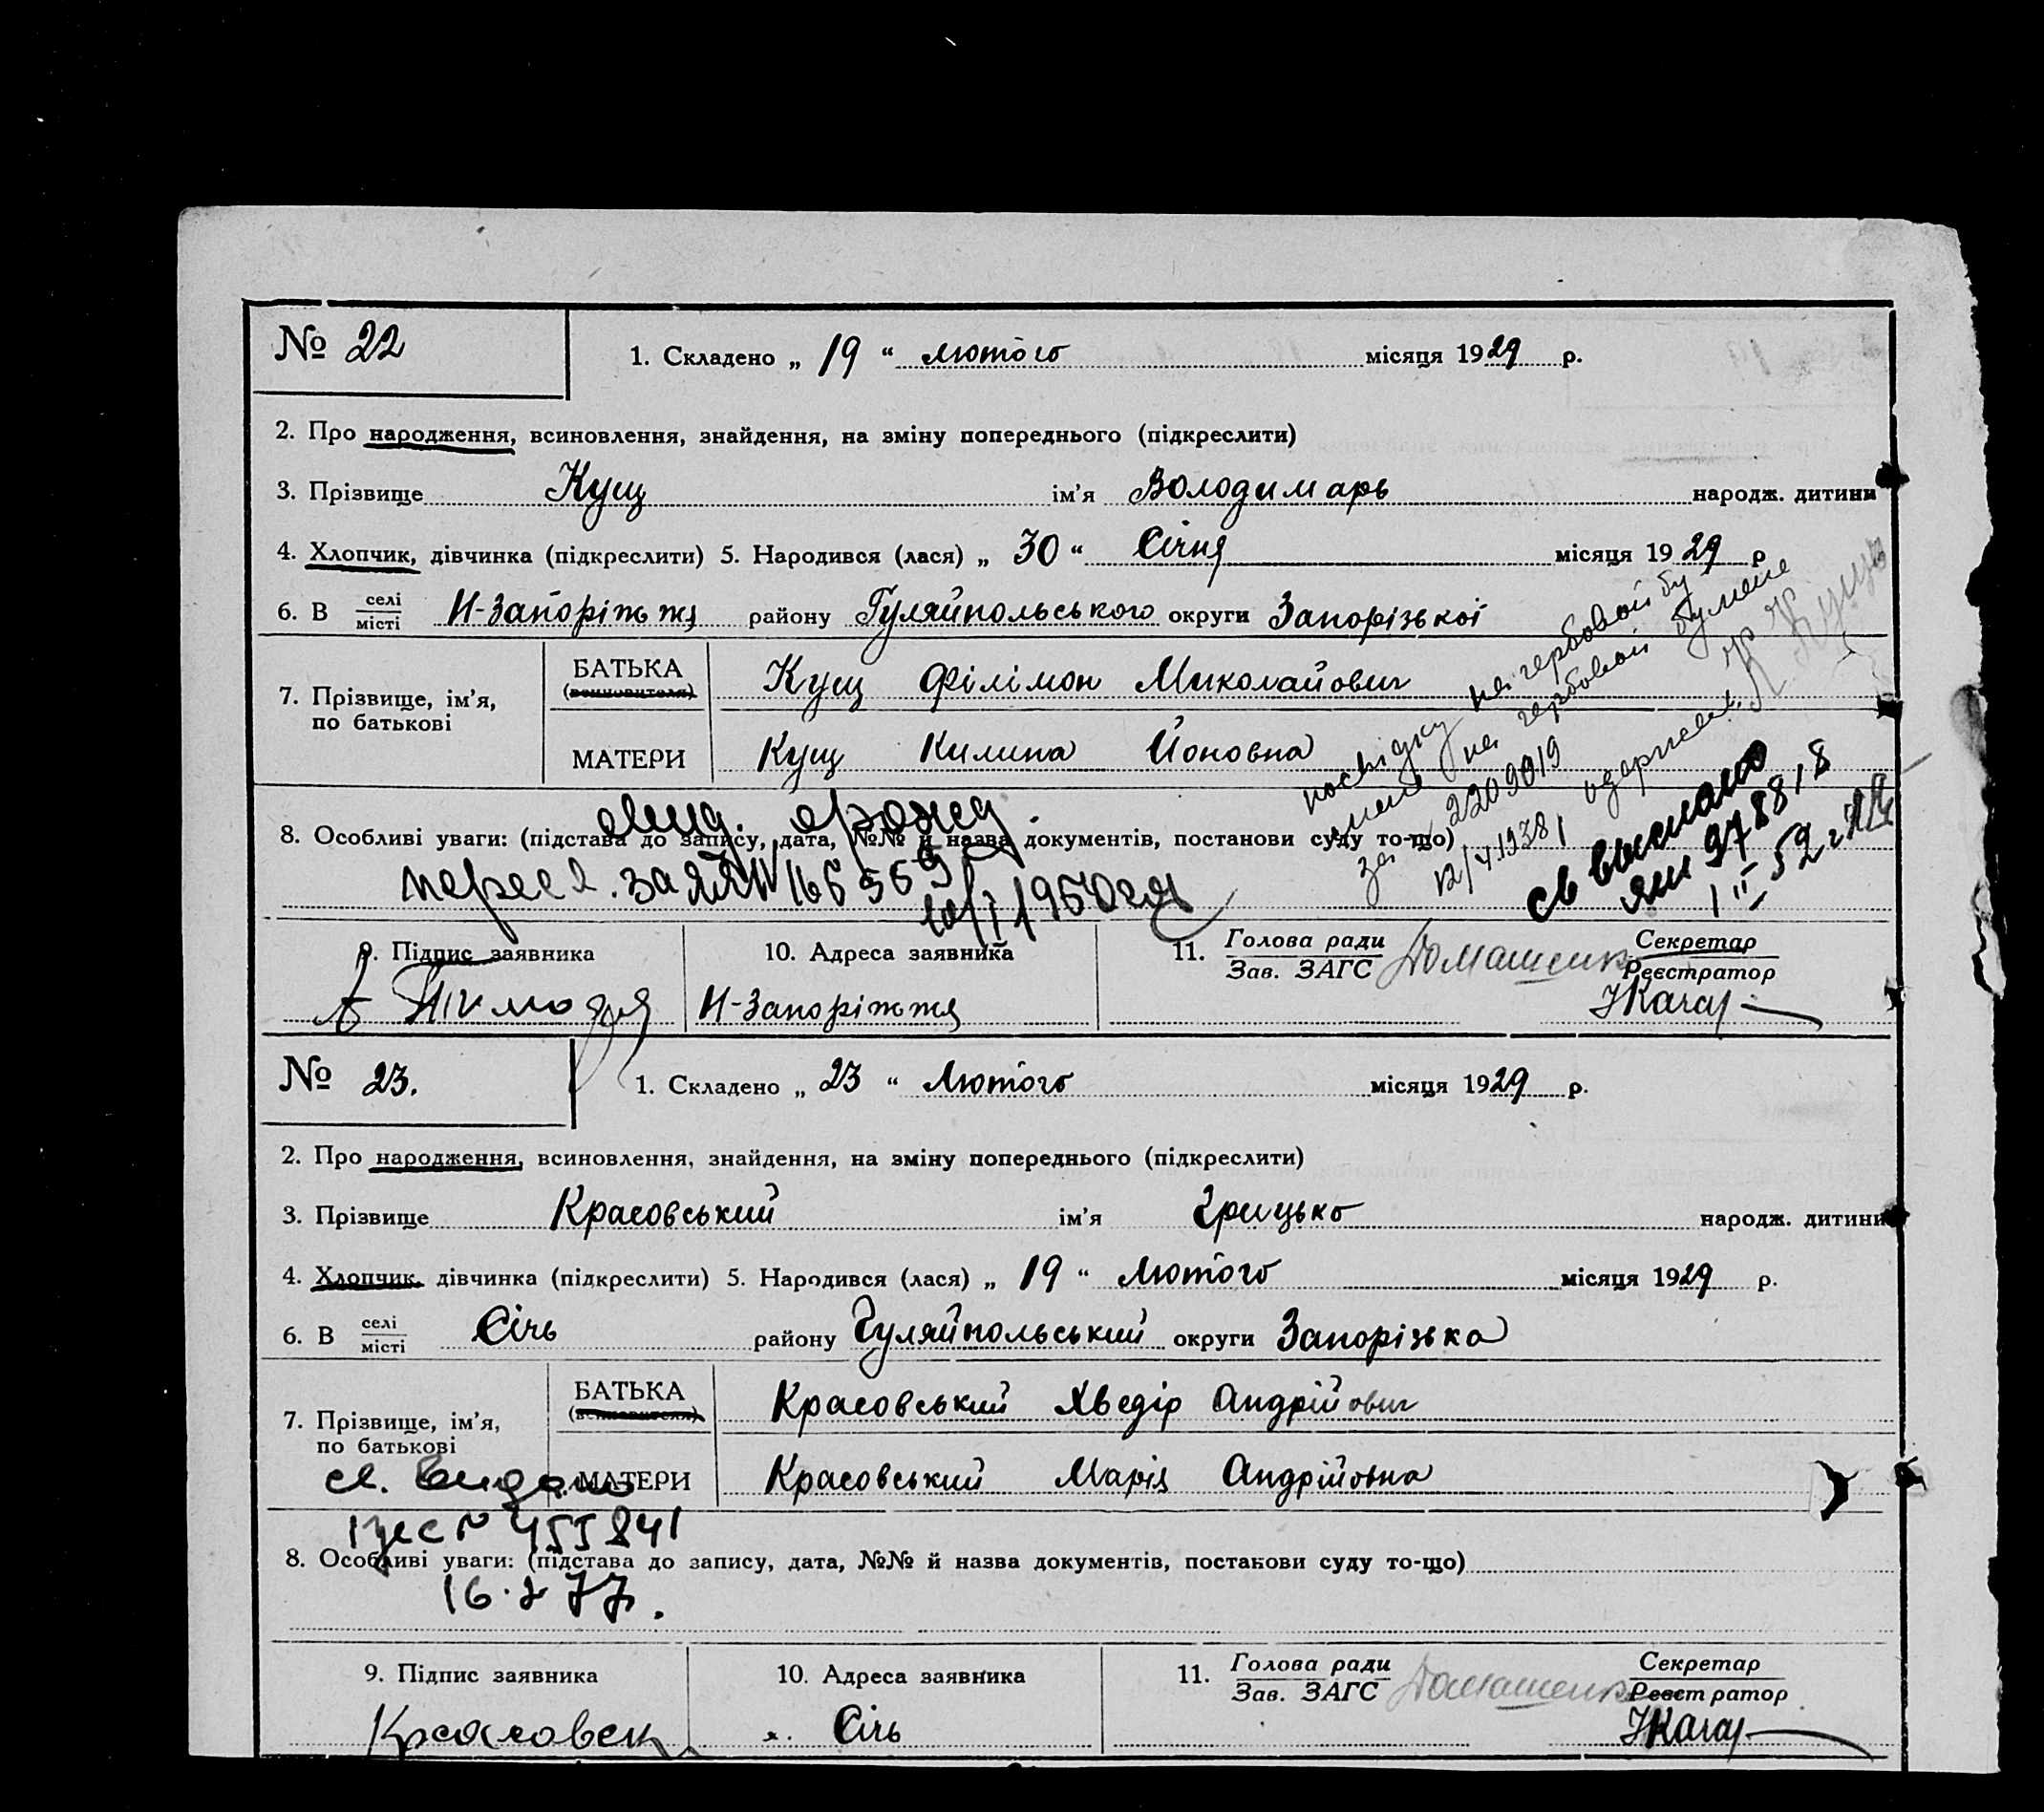 № 22
1. Складено „ 19 “ лютого місяця 1929 р.
2. Про народження, всиновлення, знайдення, на зміну попереднього (підкреслити)
3. Прізвище Кущ ім'я Володимарь народж. дитини
4. Хлопчик, дівчинка (підкреслити) 5. Народився (лася) „ 30 “ Січня місяця 1929 р
6. В селі місті Н-Запоріжжя району Гуляйпольського округи Запорізької
7. Прізвище, ім'я, по батькові
БАТЬКА (всиновителя) Кущ Філімон Миколайович
МАТЕРИ Кущ Килина Йоновна
посвідку на гербовой бу
мене на гербовой бумене
за № 2209019
12/V 1938 одержав К Кущъ
св выслано
ЯШ 978818
1 II 52 г
8. Особливі уваги: (підстава до запису, дата, №№ й назва документів, постанови суду то-що)
свид. о рожд.
10/I 1950 г
9. Підпис заявника
10. Адреса заявника
Н-Запоріжжя
11. Голова ради
Зав. ЗАГС
Домашенко
Секретар
Реєстратор
№ 23.
1. Складено „ 23 “ Лютого місяця 1929 р.
2. Про народження, всиновлення, знайдення, на зміну попереднього (підкреслити)
3. Прізвище Красовський ім'я Грицько народж. дитини
4. Хлопчик, дівчинка (підкреслити) 5. Народився (лася) „ 19 “ Лютого місяця 1929 р.
6. В селі місті Січь району Гуляйпольський округи Запорізька
7. Прізвище, ім'я, по батькові
БАТЬКА (всиновителя) Красовський Хведір Андрійович
МАТЕРИ Красовський Марія Андрійовна
св. видано
№ 455841
8. Особливі уваги: (підстава до запису, дата, №№ й назва документів, постанови суду то-що)
16.2 77.
9. Підпис заявника
Красовск
10. Адреса заявника
х. Січь
11. Голова ради
Зав. ЗАГС
Домашенко
Секретар
Реєстратор